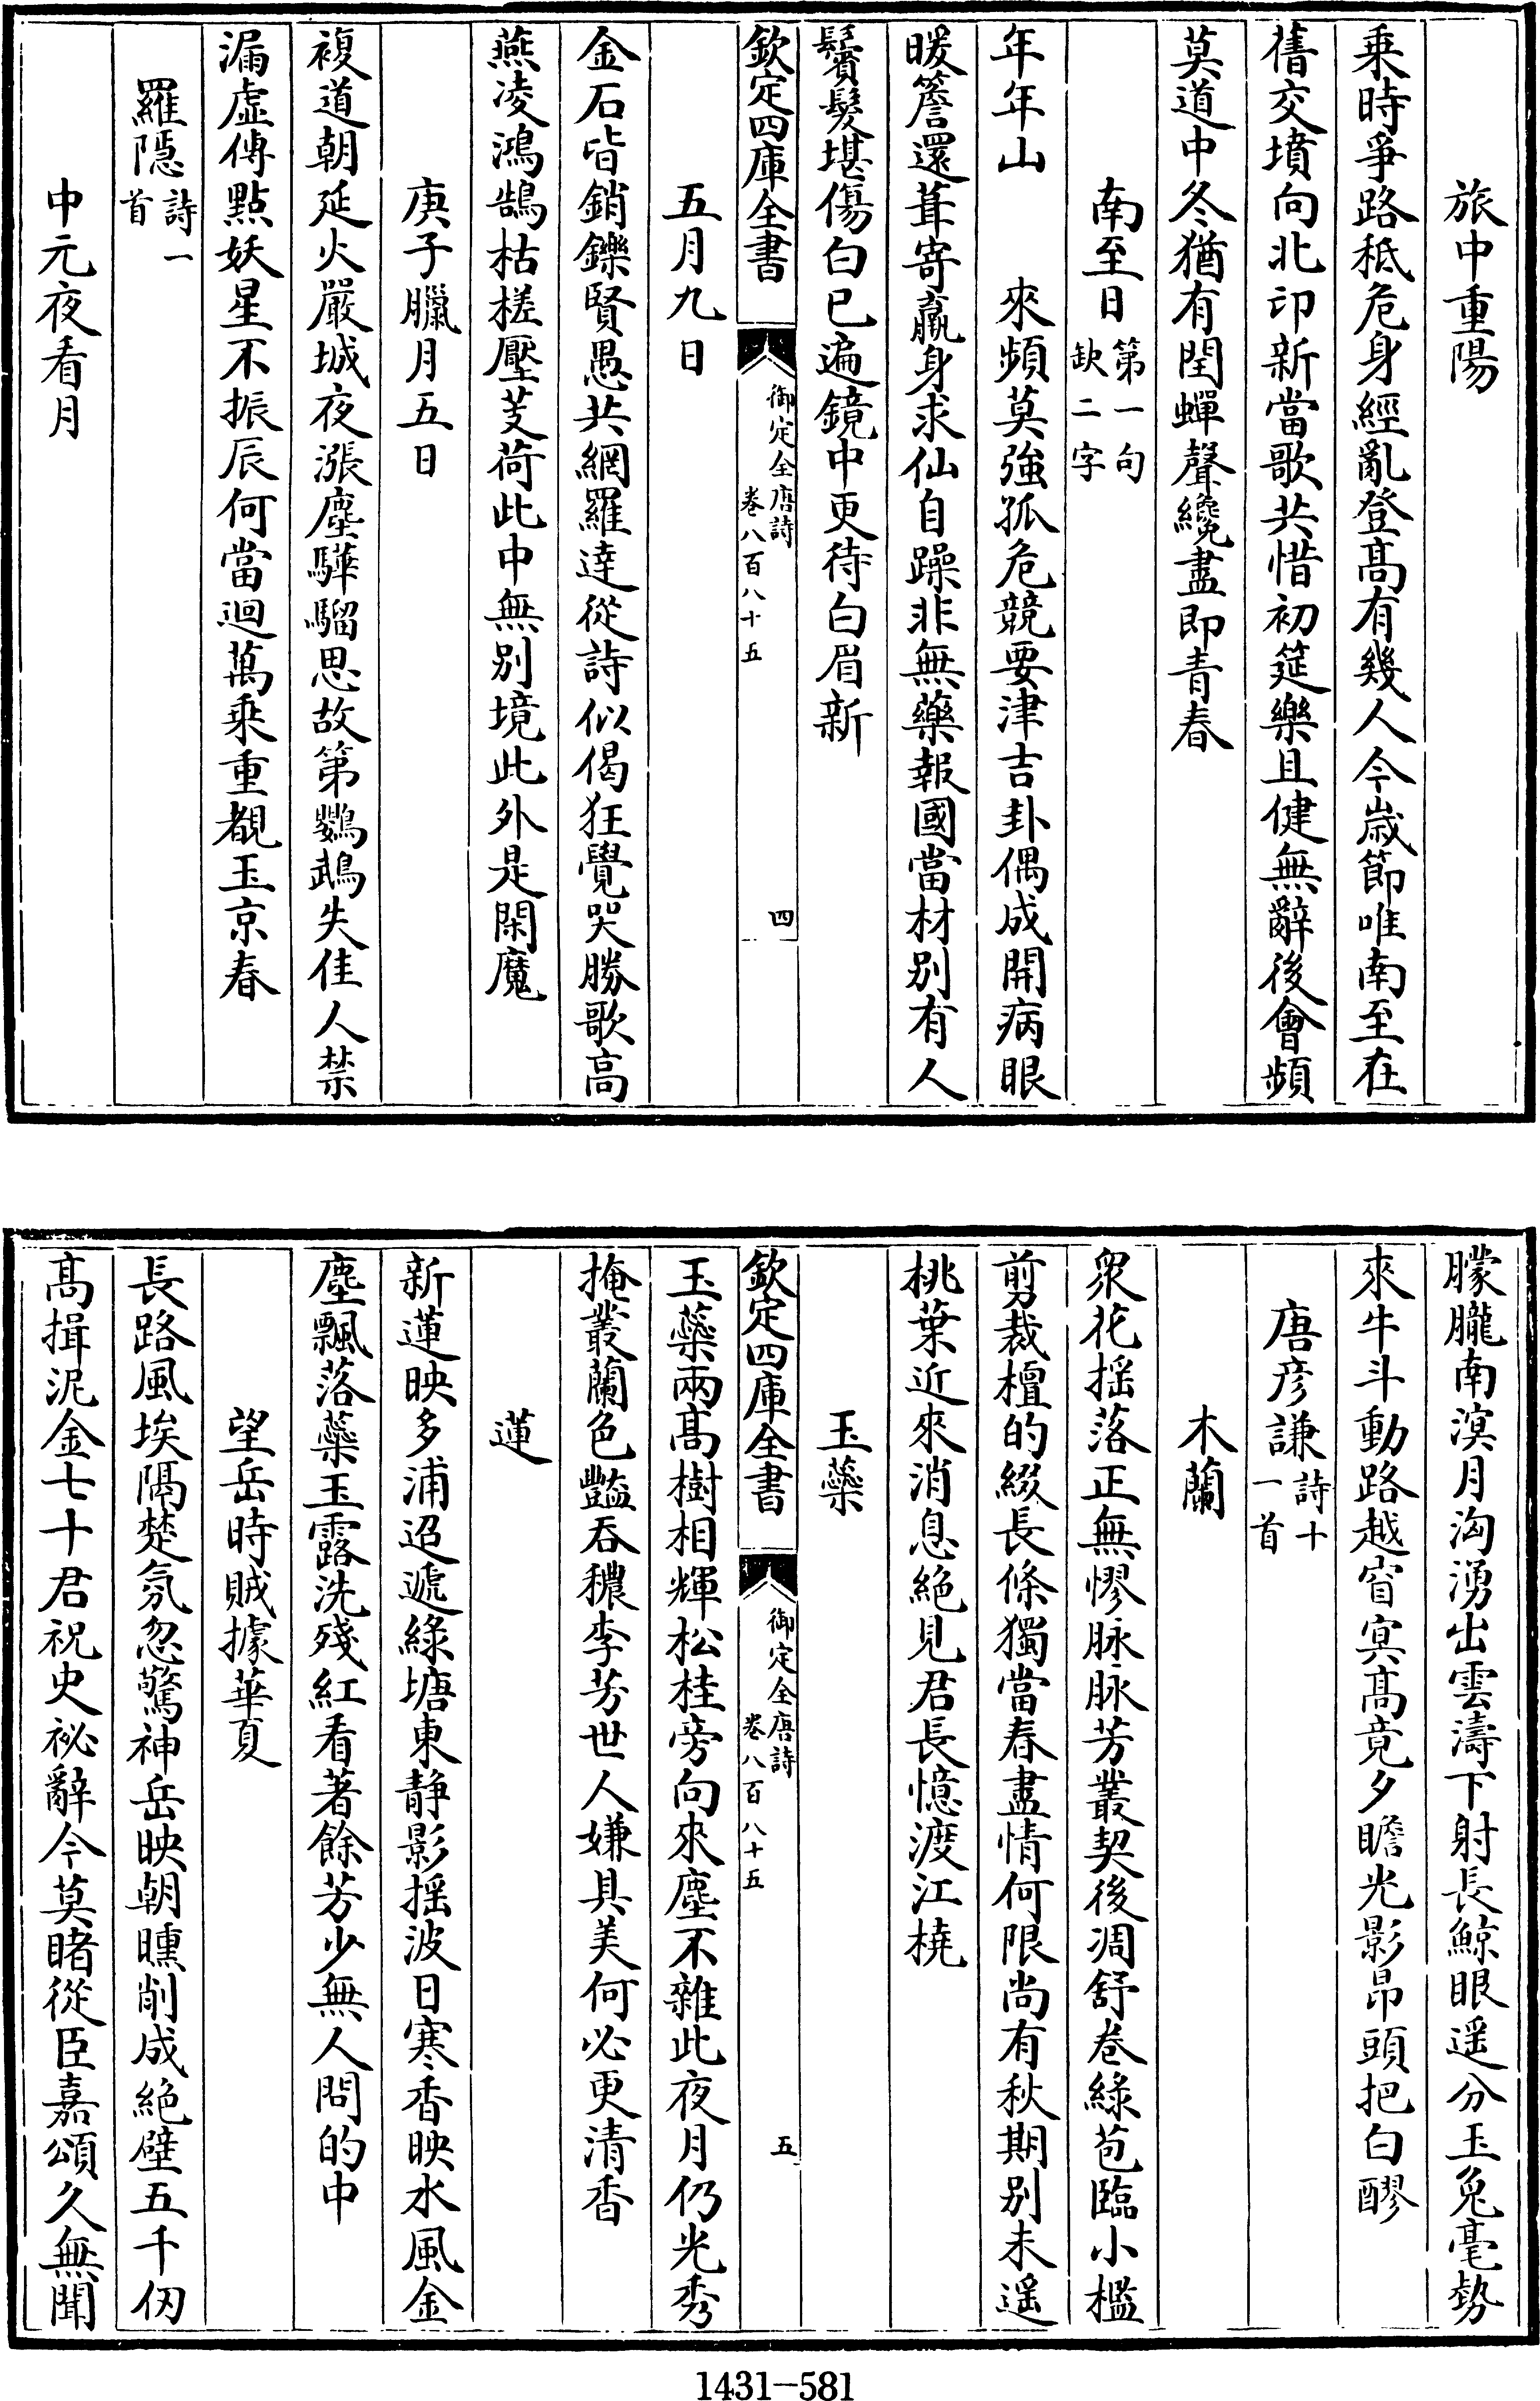 旅中重陽
乗時爭路秪危身經亂登髙有幾人今歳節唯南至在
舊交墳向北印新當歌共惜初筵樂且健無辭後會頻
莫道中冬猶有閏蟬聲纔盡即青春
南至日第一句缺二字
年年山　　來頻莫強孤危競要津吉卦偶成開病眼
暖簷還葺寄羸身求仙自躁非無藥報國當材别有人
鬢髮堪傷白已遍鏡中更待白眉新
欽定四庫全書
御定全唐詩
卷八百八十五
四
五月九日
金石皆銷鑠賢愚共網羅達從詩似偈狂覺哭勝歌高
燕凌鴻鵠枯槎壓芰荷此中無别境此外是閑魔
庚子臘月五日
複道朝延火嚴城夜漲塵驊騮思故第鸚鵡失佳人禁
漏虚傳點妖星不振辰何當迴萬乗重覩玉京春
羅隱詩一首
中元夜看月
朦朧南溟月洶湧出雲濤下射長鯨眼遥分玉兔毫勢
來牛斗動路越窅冥髙竟夕瞻光影昂頭把白醪
唐彦謙詩十一首
木蘭
衆花揺落正無憀脉脉芳叢契後凋舒卷綠苞臨小檻
剪裁檀的綴長條獨當春盡情何限尚有秋期别未遥
桃葉近來消息絶見君長憶渡江橈
玉蘂
欽定四庫全書
御定全唐詩
卷八百八十五
五
玉蘂兩髙樹相輝松桂旁向來塵不雜此夜月仍光秀
掩叢蘭色豔吞穠李芳世人嫌具美何必更清香
蓮
新蓮映多浦迢遞綠塘東静影揺波日寒香映水風金
塵飄落蘂玉露洗殘紅看著餘芳少無人問的中
望岳時賊據華夏
長路風埃隔楚氛忽驚神岳映朝曛削成絶壁五千仞
髙揖泥金七十君祝史祕辭今莫睹從臣嘉頌久無聞
1431-581